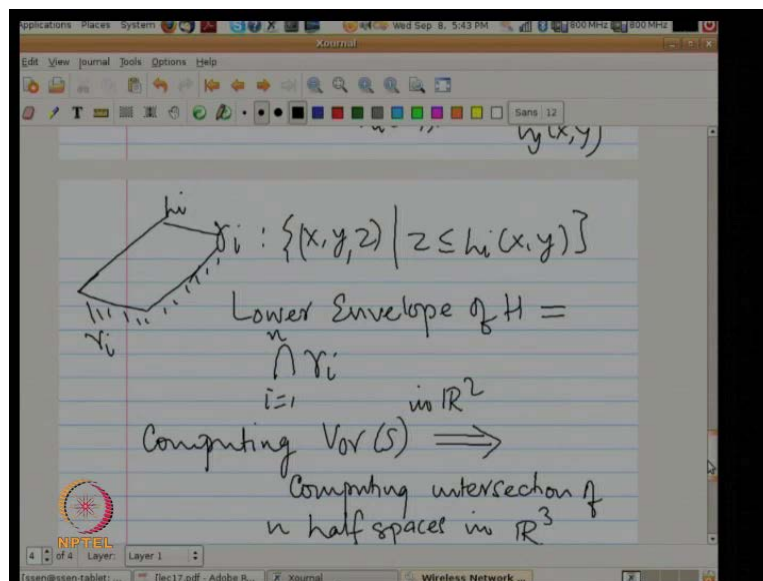 Applications Places System Wed Sep 8, 5:43 PM 800 MHz 800 MHz
Xournal
Edit View Journal Tools Options Help
Sans 12
hy(x,y)
hi
γi : {(x,y,z) | z ≤ hi(x,y)}
γi
Lower Envelope of H =
n
∩ γi
i=1
in R²
Computing Vor(S) ⟹
Computing intersection of
n half spaces in R³
NPTEL
4 of 4 Layer: Layer 1
[ssen@ssen-tablet: ... [lec17.pdf - Adobe R... Xournal Wireless Network ...